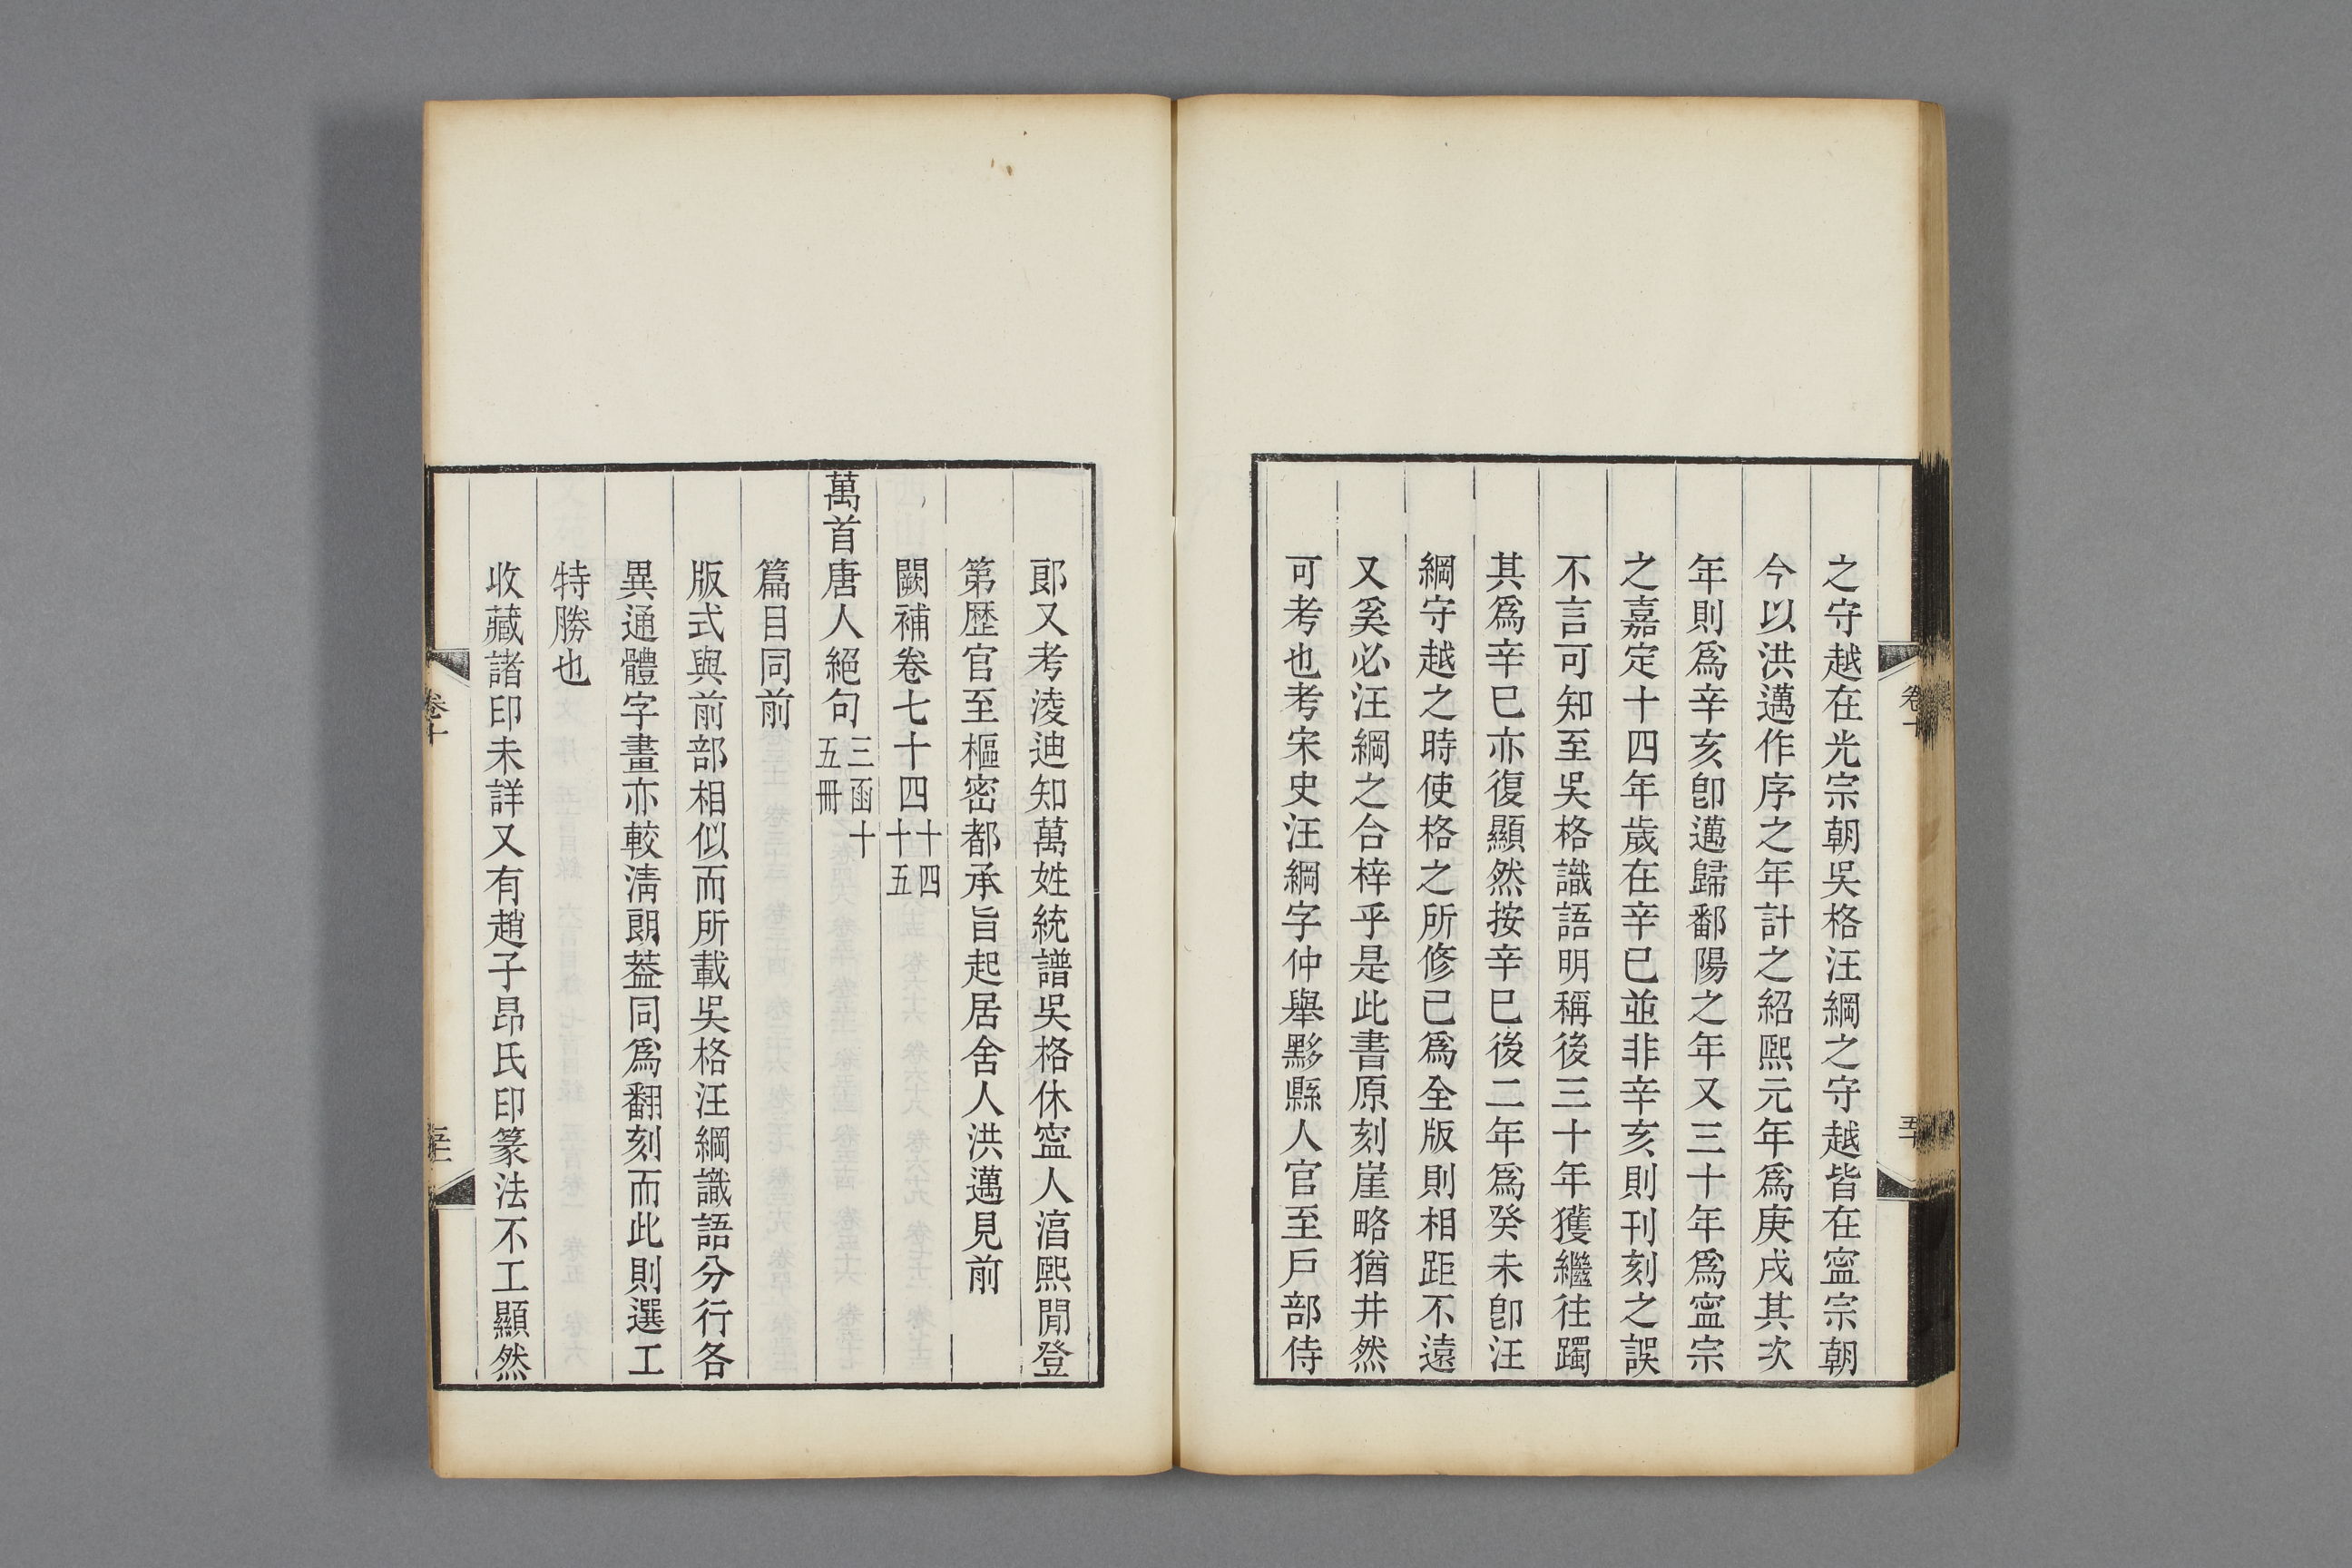 之守越在光宗朝吳格汪綱之守越皆在寍宗朝
今以洪邁作序之年計之紹熙元年爲庚戌其次
年則爲辛亥卽邁歸鄱陽之年又三十年爲寍宗
之嘉定十四年歲在辛巳並非辛亥則刊刻之誤
不言可知至吳格識語明稱後三十年獲繼往躅
其爲辛巳亦復顯然按辛巳後二年爲癸未卽汪
綱守越之時使格之所修已爲全版則相距不遠
又奚必汪綱之合梓乎是此書原刻崖略猶井然
可考也考宋史汪綱字仲舉黟縣人官至戶部侍
卷十
五十
郞又考淩迪知萬姓統譜吳格休寍人湻熙閒登
第歷官至樞密都承旨起居舍人洪邁見前
闕補卷七十四十四十五
萬首唐人絕句三函十五冊
篇目同前
版式與前部相似而所載吳格汪綱識語分行各
異通體字畫亦較淸朗葢同爲翻刻而此則選工
特勝也
收藏諸印未詳又有趙子昂氏印篆法不工顯然
卷十
五十一